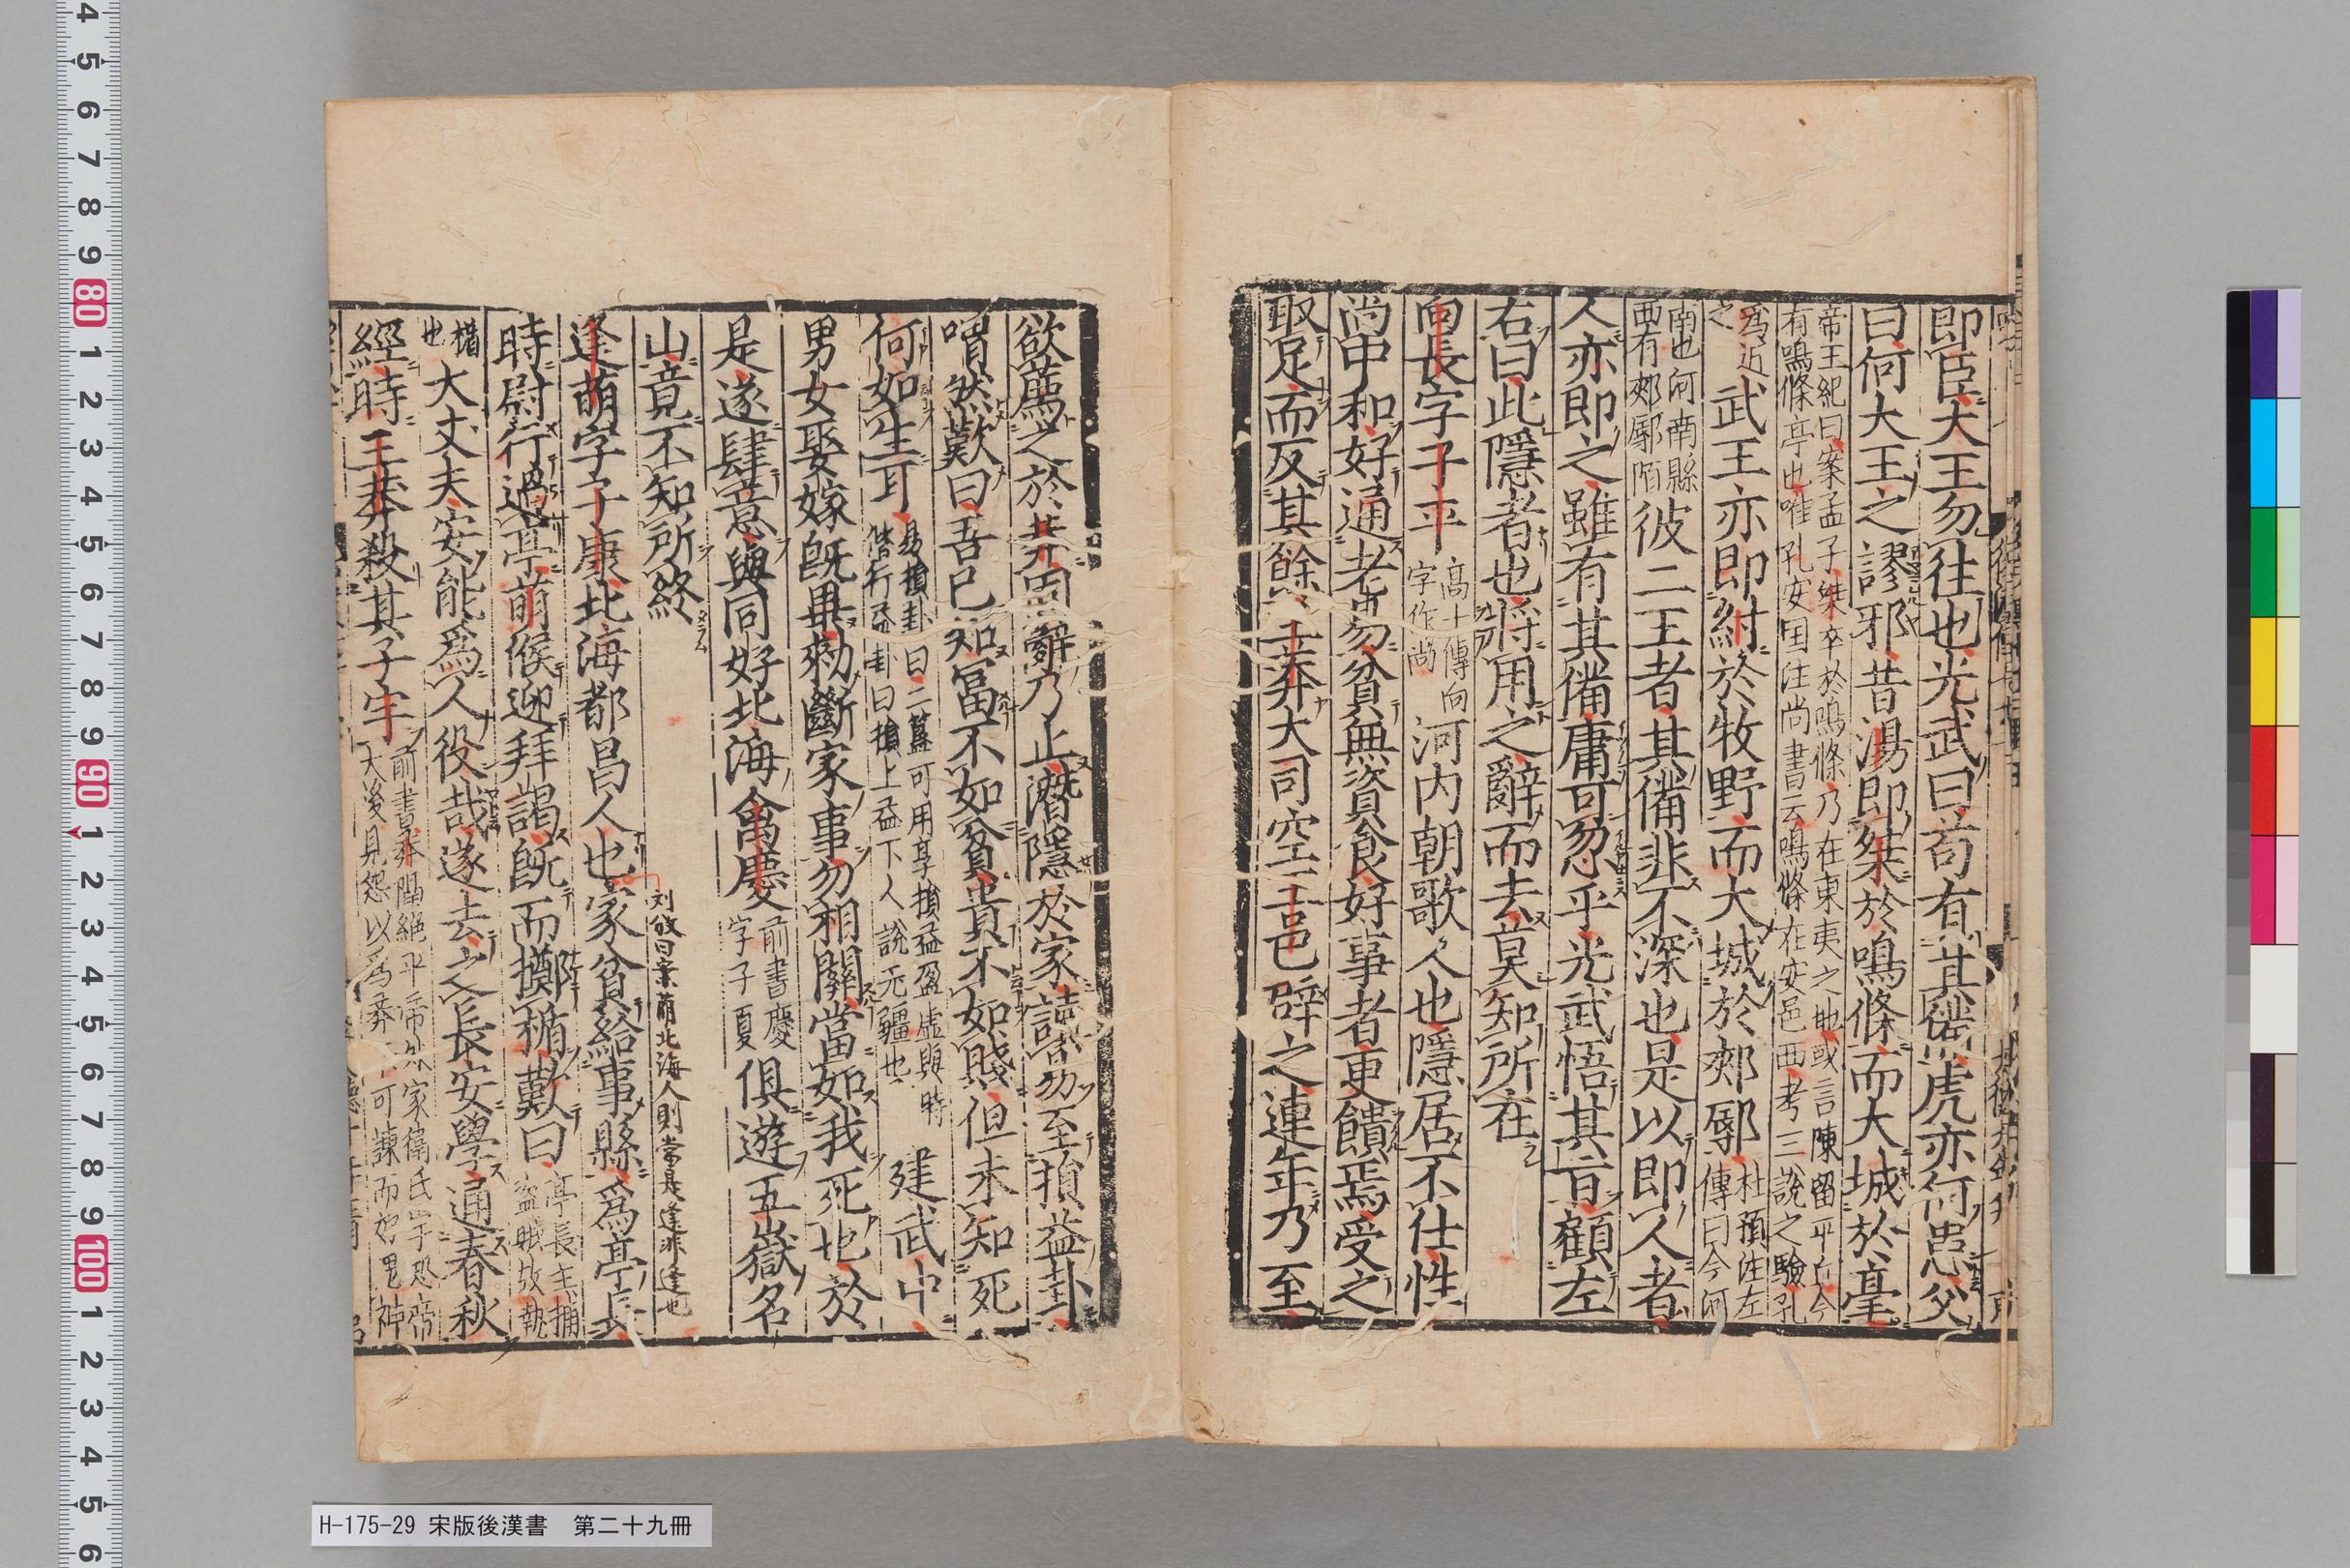 即臣大王勿往也光武曰苟有其備虎亦何患父
曰何大王之謬邪昔湯即桀於鳴條而大城於亳
帝王紀曰案孟子桀卒於鳴條乃在東夷之地或言陳留平丘今
有鳴條亭也唯孔安国注尚書云鳴條在安邑西考三說之驗孔
為近
之
武王亦即紂於牧野而大城於郟鄏
杜預注左
傳曰今河
南也河南縣
西有郟鄏陌
彼二王者其備非不深也是以即人者
人亦即之雖有其備庸可忽乎光武悟其旨顧左
右曰此隱者也將用之辭而去莫知所在
向長字子平
高士傳向
字作尚
河内朝歌人也隱居不仕性
尚中和好通老易貧無資食好事者更饋焉受之
取足而反其餘王莽大司空王邑辟之連年乃至
欲薦之於莽固辭乃止潛隱於家讀易至損益卦
喟然歎曰吾已知富不如貧貴不如賤但未知死
何如生耳
易損卦曰二簋可用享損益盈虛與時
偕行益卦曰損上益下人說无疆也
建武中
男女娶嫁既畢勑斷家事勿相關當如我死也於
是遂肆意與同好北海禽慶
前書慶
字子夏
俱遊五嶽名
山竟不知所終
逢萌字子康北海都昌人也
刘攽曰案萌北海人則當是逄非逢也
家貧給事縣爲亭長
時尉行過亭萌候迎拜謁既而擲楯歎曰
亭長主捕
盜賊故執
楯
也
大丈夫安能爲人役哉遂去之長安學通春秋
經時王莽殺其子宇
前書莽隔絕平帝外家衛氏宇恐帝
大後見怨以爲莽不可諫而好鬼神
H-175-29 宋版後漢書 第二十九冊